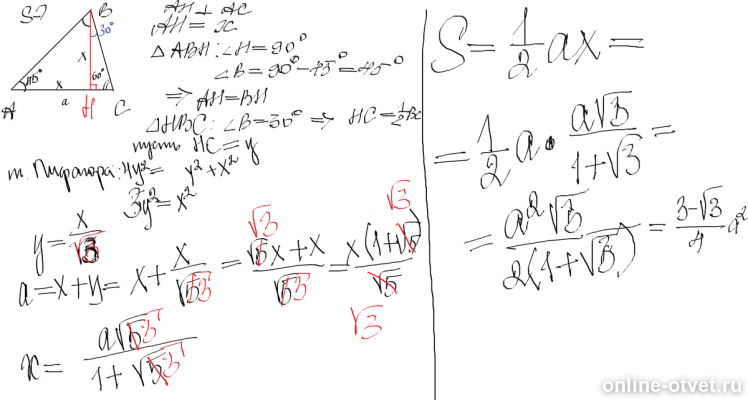 S-?
B
30°
x
45°
x
60°
A
a
H
C
AH ⊥ AC
AH = x
△ABH: ∠H = 90°
∠B = 90° - 45° = 45°
⇒ AH = BH
△HBC: ∠B = 30° ⇒ HC = 1/2 BC
пусть HC = y
т. Пифагора: 4y² = y² + x²
3y² = x²
y = x/√3
a = x + y = x + x/√3 = (√3x + x)/√3 = x(1+√3)/√3
x = a√3/(1+√3)
S = 1/2 ax =
= 1/2 a · a√3/(1+√3) =
= a²√3/(2(1+√3)) = (3-√3)/4 a²
online-otvet.ru